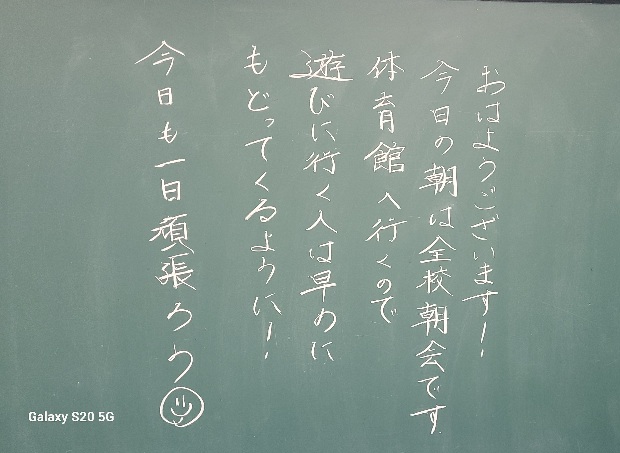 おはようございます!
今日の朝は全校朝会です
体育館へ行くので
遊びに行く人は早めに
もどってくるように!
今日も一日頑張ろう
Galaxy S20 5G